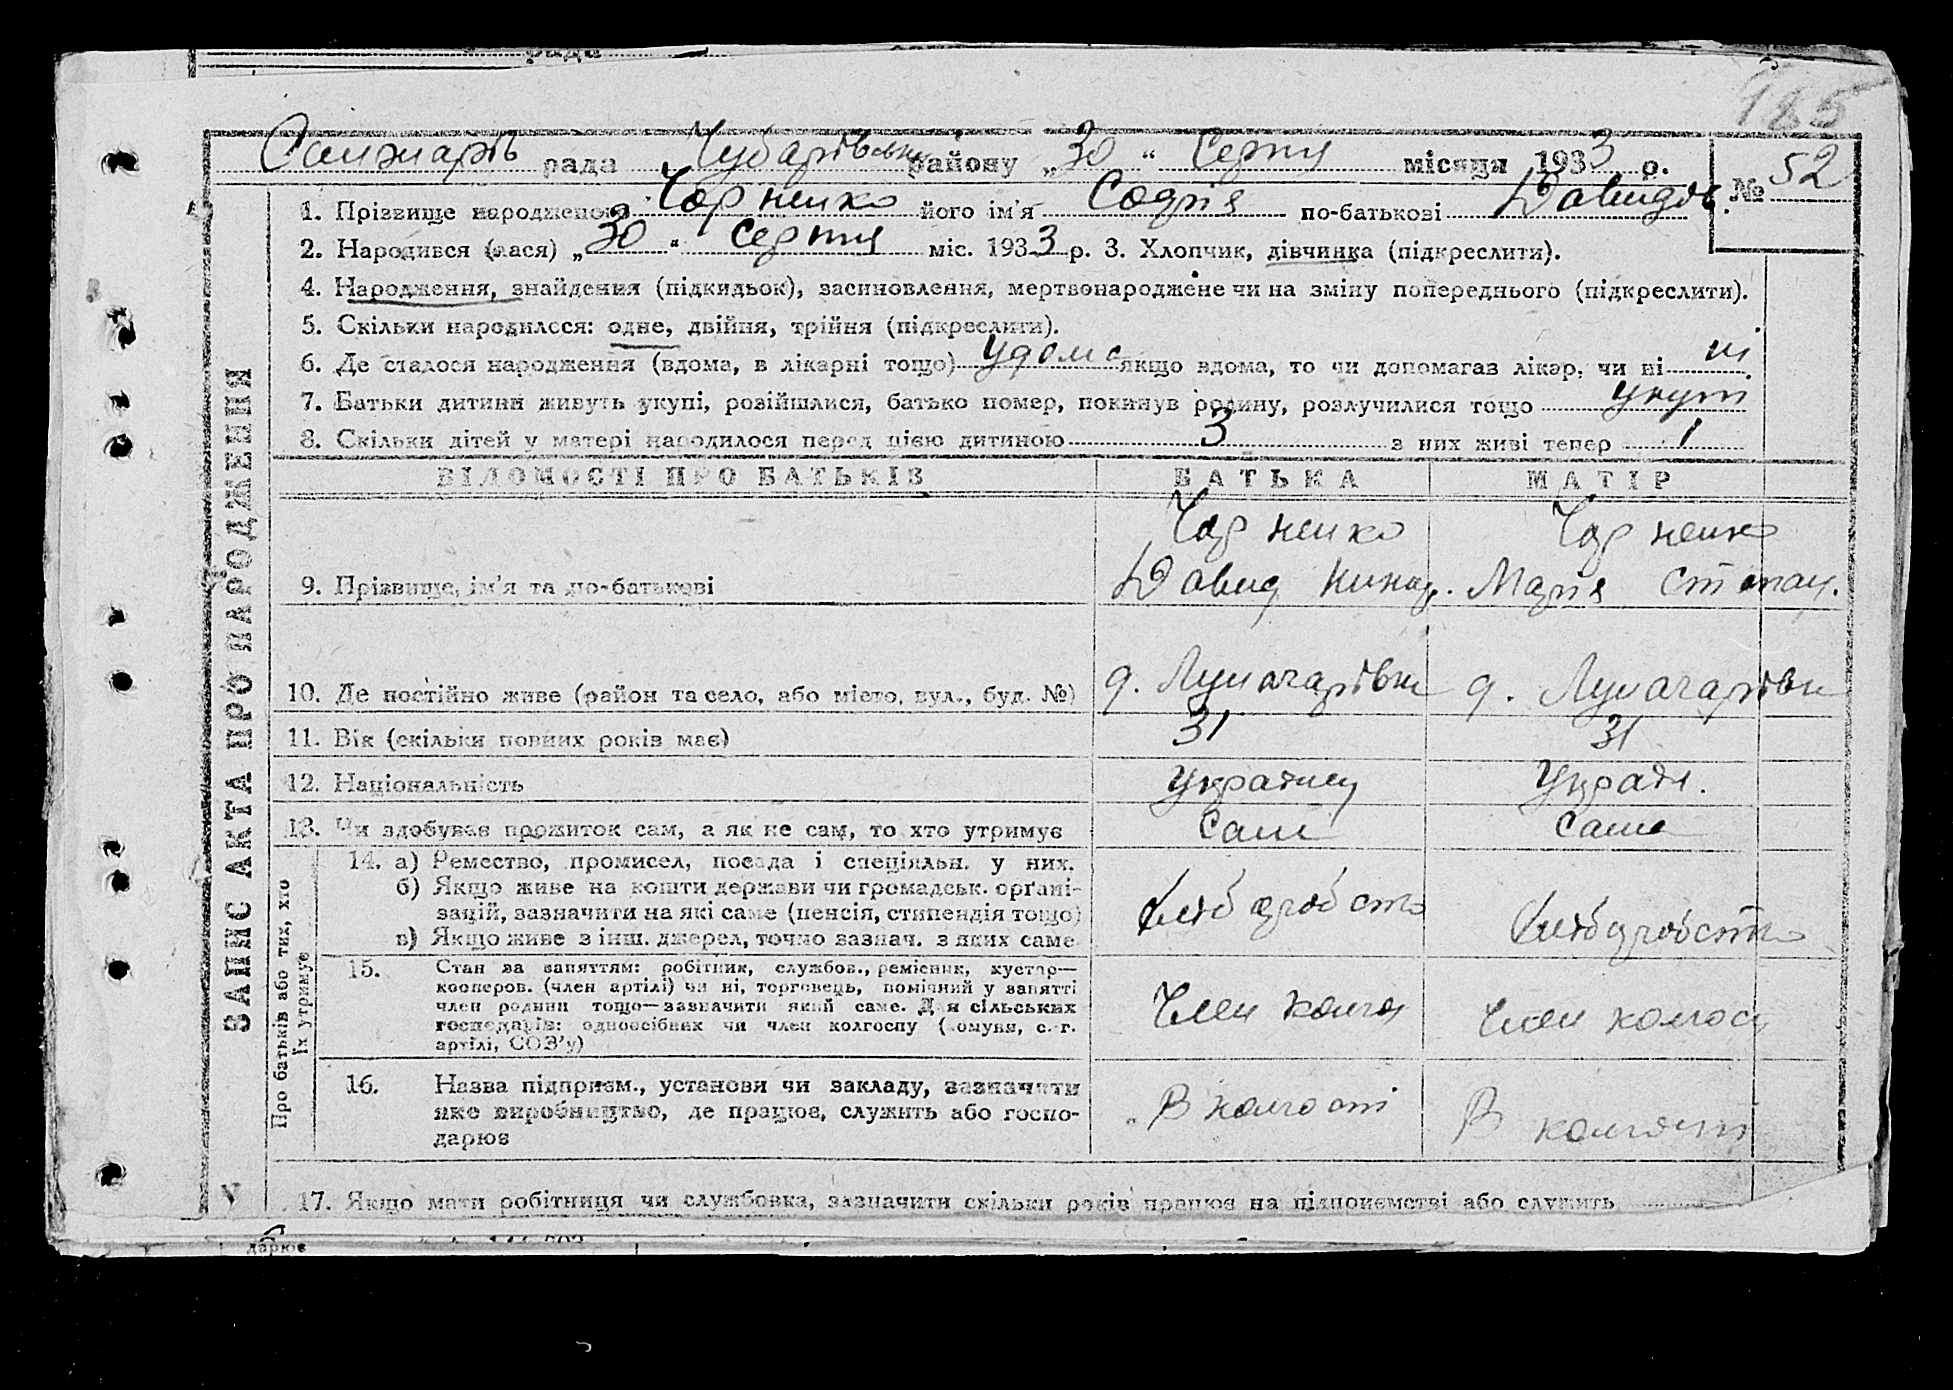 185
Санжарів рада Чубарівськ району „30“ Серпня місяця 1933 р. № 52
1. Прізвище народженого Чорненко його ім'я Софія по-батькові Давидов.
2. Народився (лася) „30“ Серпня міс. 1933 р. 3. Хлопчик, дівчинка (підкреслити).
4. Народження, знайдення (підкидьок), засиновлення, мертвонароджене чи на зміну попереднього (підкреслити).
5. Скільки народилося: одне, двійня, трійня (підкреслити).
6. Де сталося народження (вдома, в лікарні тощо) удома якщо вдома, то чи допомагав лікар, чи ні ні
7. Батьки дитини живуть укупі, розійшлися, батько помер, покинув родину, розлучилися тощо укупі
8. Скільки дітей у матері народилося перед цією дитиною 3 з них живі тепер 1
ВІДОМОСТІ ПРО БАТЬКІВ БАТЬКА МАТІР
Чорненко Чорненко
9. Прізвище, ім'я та по-батькові Давид Марія Степан.
10. Де постійно живе (район та село, або місто, вул., буд. №) с. Луначарівка с. Луначарівка
11. Вік (скільки повних років має) 31 31
12. Національність Українец Україн.
13. Чи здобуває прожиток сам, а як не сам, то хто утримує Сам Сама
14. а) Ремество, промисел, посада і спеціяльн. у них.
б) Якщо живе на кошти держави чи громадськ. органі-
зацій, зазначити на які саме (пенсія, стипендія тощо) хліборобство хліборобство
в) Якщо живе з інш. джерел, точно зазнач. з яких саме
15. Стан за заняттям: робітник, службов., ремісник, кустар—
кооперов. (член артілі) чи ні, торговець, помічний у занятті
член родини тощо—зазначити який саме. Для сільських Член колгос Член колгосп
господарів: одноосібник чи член колгоспу (комуня, с.-г.
артілі, СОЗ'у)
16. Назва підприєм., установи чи закладу, зазначити
яке виробництво, де працює, служить або госпо- В колгоспі В колгоспі
дарює
17. Якщо мати робітниця чи службовка, зазначити скільки років працює на підприємстві або служить
ЗАПИС АКТА ПРО НАРОДЖЕННЯ
Про батьків або тих, хто
їх утримує
дарює